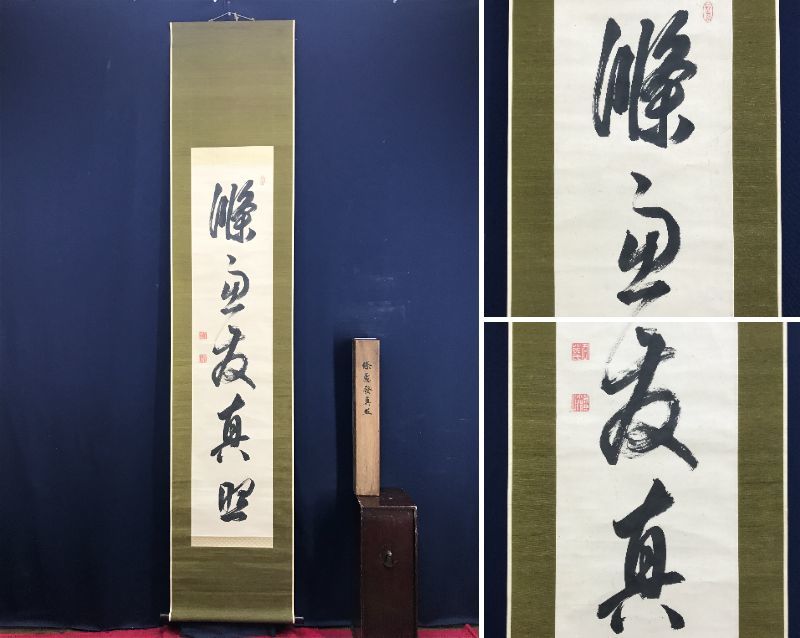 滌慮發真照
滌慮發真照
滌慮
發真